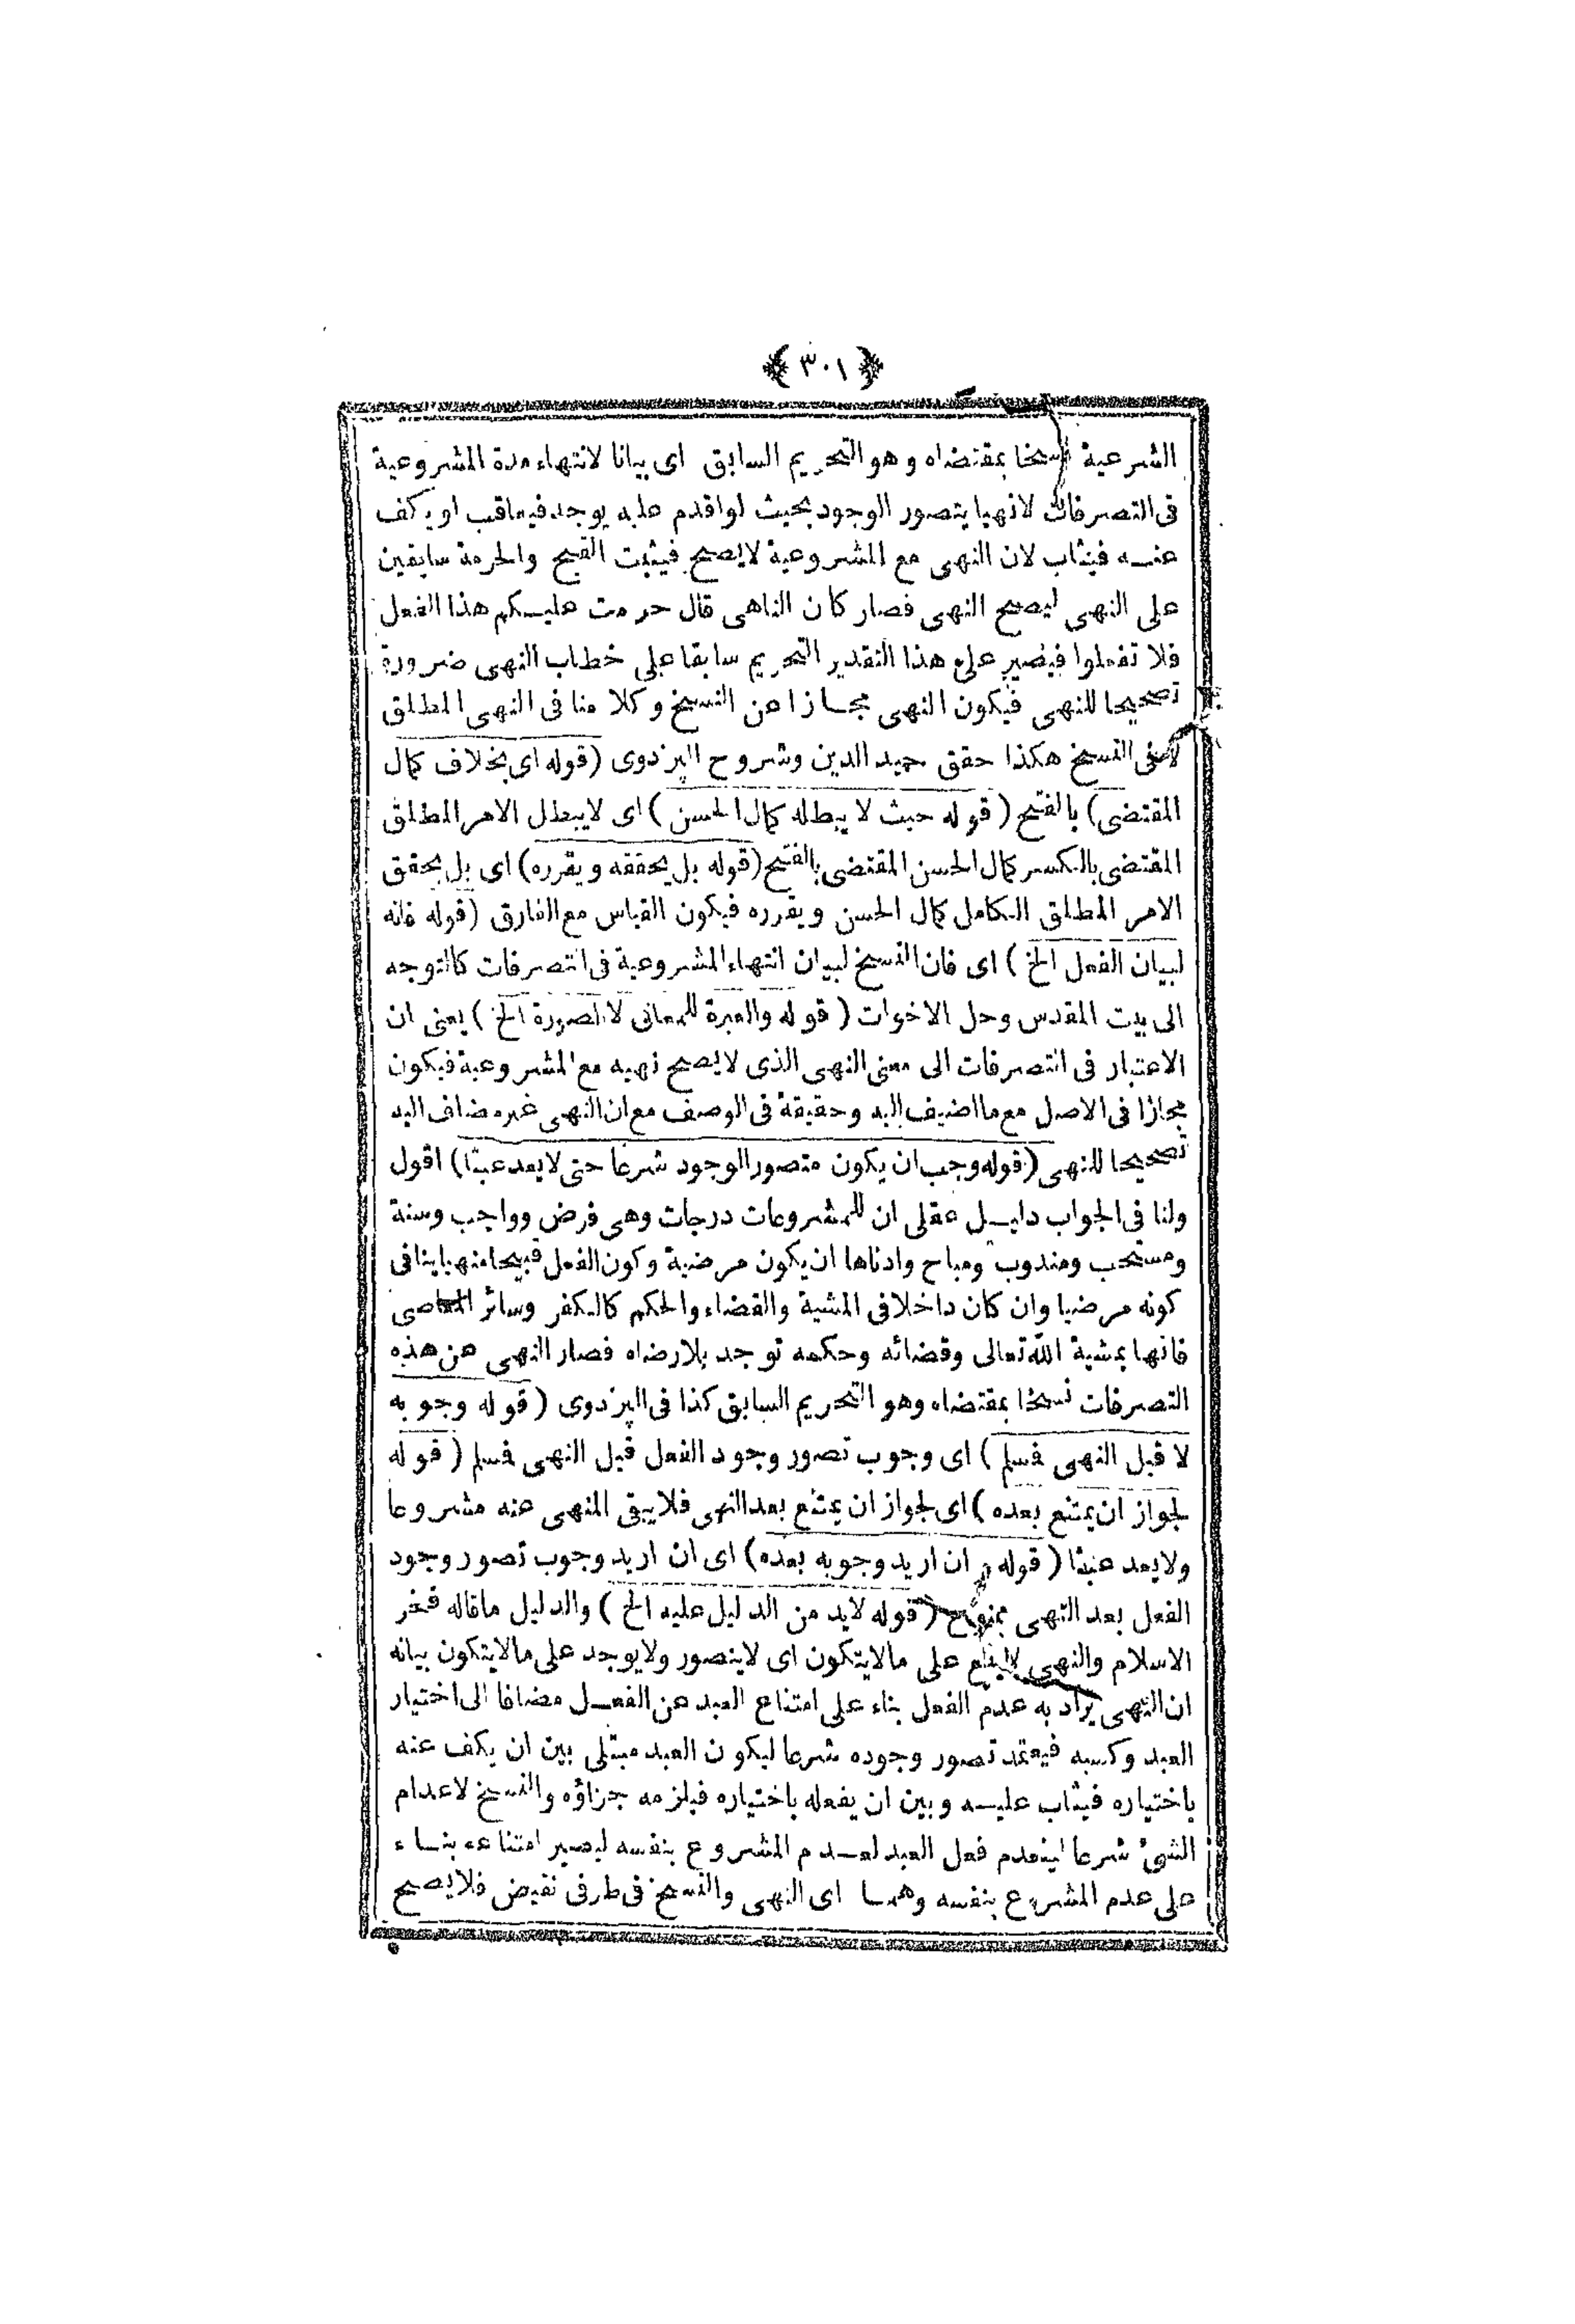 ﴿ ٣٠١ ﴾
الشرعية نسخا بمقتضاه وهو التحريم السابق اى بيانا لانتهاء مدة المشروعية
فى التصرفات لانهيا يتصور الوجود بحيث لو اقدم عليه يوجد فيعاقب او يكف
عنه فيثاب لان النهى مع المشروعية لايصح فيثبت القبح والحرمة سابقين
على النهى ليصح النهى فصار كان الناهى قال حرمت عليكم هذا الفعل
فلا تفعلوا فيصير على هذا التقدير التحريم سابقا على خطاب النهى ضرورة
تصحيحا للنهى فيكون النهى مجازا عن النسخ وكلامنا فى النهى المطلق
لا فى النسخ هكذا حقق حميد الدين وشروح البزدوى (قوله اى بخلاف كمال
المقتضى) بالفتح (قوله حيث لا يبطله كمال الحسن) اى لا يبطل الامر المطلق
المقتضى بالكسر كمال الحسن المقتضى بالفتح (قوله بل يحققه ويقرره) اى بل يحقق
الامر المطلق الكامل كمال الحسن ويقرره فيكون القياس مع الفارق (قوله فانه
لبيان الفعل الخ) اى فان النسخ لبيان انتهاء المشروعية فى التصرفات كالتوجه
الى بيت المقدس وحل الاخوات (قوله والعبرة للمعانى لا الصورة الخ) يعنى ان
الاعتبار فى التصرفات الى معنى النهى الذى لايصح نهيه مع المشروعية فيكون
مجازا فى الاصل مع ما اضيف اليه وحقيقة فى الوصف مع ان النهى غير مضاف اليه
تصحيحا للنهى (قوله وجب ان يكون متصور الوجود شرعا حتى لايعد عبثا) اقول
ولنا فى الجواب دليل عقلى ان للمشروعات درجات وهى فرض وواجب وسنة
ومستحب ومندوب ومباح وادناها ان يكون مرضية وكون الفعل قبيحا منهيا ينافى
كونه مرضيا وان كان داخلا فى المشية والقضاء والحكم كالكفر وسائر المعاصى
فانها بمشية الله تعالى وقضائه وحكمه توجد بلا رضاه فصار النهى عن هذه
التصرفات نسخا بمقتضاه وهو التحريم السابق كذا فى البزدوى (قوله وجوبه
لا قبل النهى فسلم) اى وجوب تصور وجود الفعل قبل النهى فسلم (قوله
لجواز ان يمتنع بعده) اى لجواز ان يمتنع بعد النهى فلا يبقى المنهى عنه مشروعا
ولايعد عبثا (قوله ان اريد وجوبه بعده) اى ان اريد وجوب تصور وجود
الفعل بعد النهى ممنوع (قوله لابد من الدليل عليه الخ) والدليل ماقاله فخر
الاسلام والنهى لايقع على مالايتكون اى لايتصور ولايوجد على مالايتكون بيانه
ان النهى يراد به عدم الفعل بناء على امتناع العبد عن الفعل مضافا الى اختيار
العبد وكسبه فيعتمد تصور وجوده شرعا ليكون العبد مبتلى بين ان يكف عنه
باختياره فيثاب عليه وبين ان يفعله باختياره فيلزمه جزاؤه والنسخ لاعدام
الشئ شرعا لينعدم فعل العبد لعدم المشروع بنفسه ليصير امتناعه بناء
على عدم المشروع بنفسه وهما اى النهى والنسخ فى طرفى نقيض فلايصح